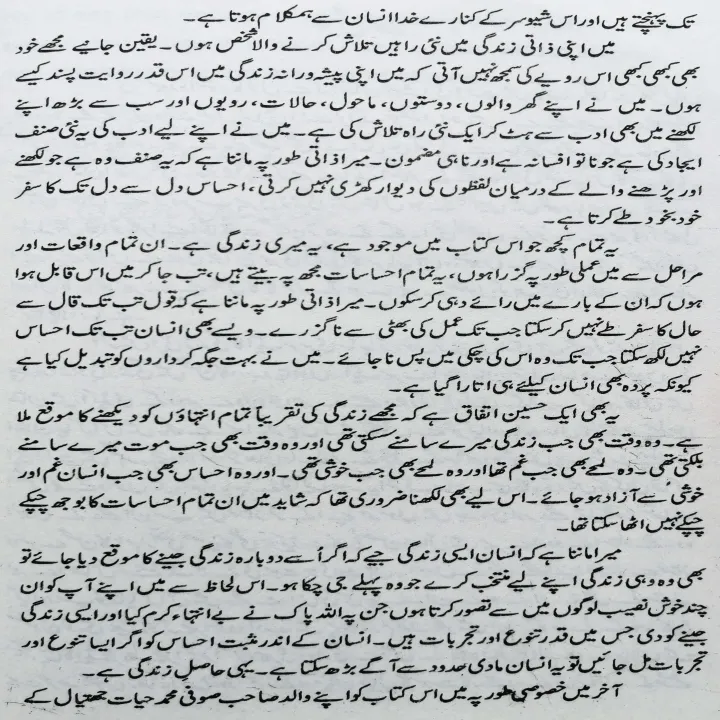 تک پہنچتے ہیں اور اس شیوسر کے کنارے خدا انسان سے ہمکلام ہوتا ہے۔
میں اپنی ذاتی زندگی میں نئی راہیں تلاش کرنے والا شخص ہوں۔ یقین جانیے مجھے خود
بھی کبھی کبھی اس رویے کی سمجھ نہیں آتی کہ میں اپنی پیشہ ورانہ زندگی میں اس قدر روایت پسند کیسے
ہوں۔ میں نے اپنے گھر والوں، دوستوں، ماحول، حالات، رویوں اور سب سے بڑھ اپنے
لکھنے میں بھی ادب سے ہٹ کر ایک نئی راہ تلاش کی ہے۔ میں نے اپنے لیے ادب کی یہ نئی صنف
ایجاد کی ہے جو نا تو افسانہ ہے اور نا ہی مضمون۔ میرا ذاتی طور پہ ماننا ہے کہ یہ صنف وہ ہے جو لکھنے
اور پڑھنے والے کے درمیان لفظوں کی دیوار کھڑی نہیں کرتی، احساس دل سے دل تک کا سفر
خود بخود طے کرتا ہے۔
یہ تمام کچھ جو اس کتاب میں موجود ہے، یہ میری زندگی ہے۔ ان تمام واقعات اور
مراحل سے میں عملی طور پہ گزرا ہوں، یہ تمام احساسات مجھ پہ بیتے ہیں، تب جا کر میں اس قابل ہوا
ہوں کہ ان کے بارے میں رائے دہی کر سکوں۔ میرا ذاتی طور پہ ماننا ہے کہ قول تب تک قال سے
حال کا سفر طے نہیں کر سکتا جب تک عمل کی بھٹی سے نا گزرے۔ ویسے بھی انسان تب تک احساس
نہیں لکھ سکتا جب تک وہ اس کی چکی میں پس نا جائے۔ میں نے بہت جگہ کرداروں کو تبدیل کیا ہے
کیونکہ پردہ بھی انسان کیلئے ہی اتارا گیا ہے۔
یہ بھی ایک حسین اتفاق ہے کہ مجھے زندگی کی تقریباً تمام انتہاؤں کو دیکھنے کا موقع ملا
ہے۔ وہ وقت بھی جب زندگی میرے سامنے سسکتی تھی اور وہ وقت بھی جب موت میرے سامنے
بلکتی تھی۔ وہ لمحے بھی جب غم تھا اور وہ لمحے بھی جب خوشی تھی۔ اور وہ احساس بھی جب انسان غم اور
خوشی سے آزاد ہو جائے۔ اس لیے بھی لکھنا ضروری تھا کہ شاید میں ان تمام احساسات کا بوجھ چپکے
چپکے نہیں اٹھا سکتا تھا۔
میرا ماننا ہے کہ انسان ایسی زندگی جیے کہ اگر اُسے دوبارہ زندگی جینے کا موقع دیا جائے تو
بھی وہ وہی زندگی اپنے لیے منتخب کرے جو وہ پہلے جی چکا ہو۔ اس لحاظ سے میں اپنے آپ کو ان
چند خوش نصیب لوگوں میں سے تصور کرتا ہوں جن پہ اللہ پاک نے بے انتہاء کرم کیا اور ایسی زندگی
جینے کو دی جس میں قدر تنوع اور تجربات ہیں۔ انسان کے اندر مثبت احساس کو اگر ایسا تنوع اور
تجربات مل جائیں تو یہ انسان مادی حدود سے آگے بڑھ سکتا ہے۔ یہی حاصلِ زندگی ہے۔
آخر میں خصوصی طور پہ میں اس کتاب کو اپنے والد صاحب صوفی محمد حیات جتھیال کے